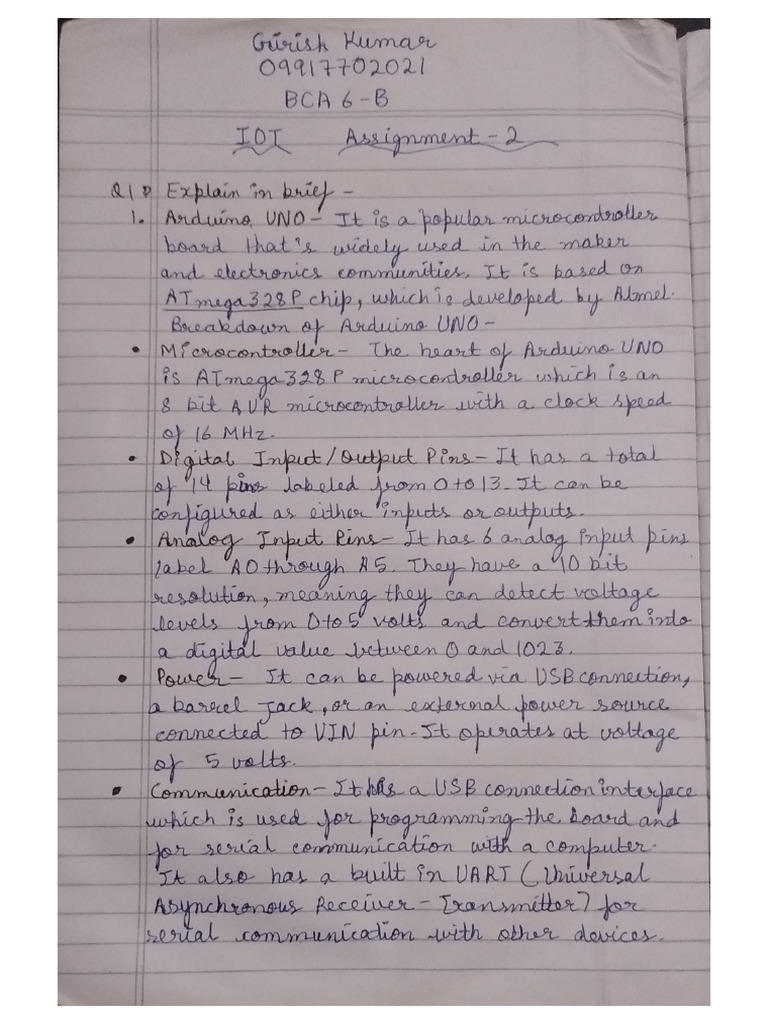 Girish Kumar
09917702021
BCA 6-B
IOT Assignment-2
Q1 Explain in brief -
1. Arduino UNO- It is a popular microcontroller
board that's widely used in the maker
and electronics communities. It is based on
ATmega328P chip, which is developed by Atmel.
Breakdown of Arduino UNO-
• Microcontroller- The heart of Arduino UNO
is ATmega328P microcontroller which is an
8 bit AVR microcontroller with a clock speed
of 16 MHz.
• Digital Input/Output Pins- It has a total
of 14 pins labeled from 0 to 13. It can be
configured as either inputs or outputs.
• Analog Input Pins- It has 6 analog input pins
label A0 through A5. They have a 10 bit
resolution, meaning they can detect voltage
levels from 0 to 5 volts and convert them into
a digital value between 0 and 1023.
• Power- It can be powered via USB connection,
a barrel jack, or an external power source
connected to VIN pin. It operates at voltage
of 5 volts.
• Communication- It has a USB connection interface
which is used for programming the board and
for serial communication with a computer.
It also has a built in UART (Universal
Asynchronous Receiver-Transmitter) for
serial communication with other devices.